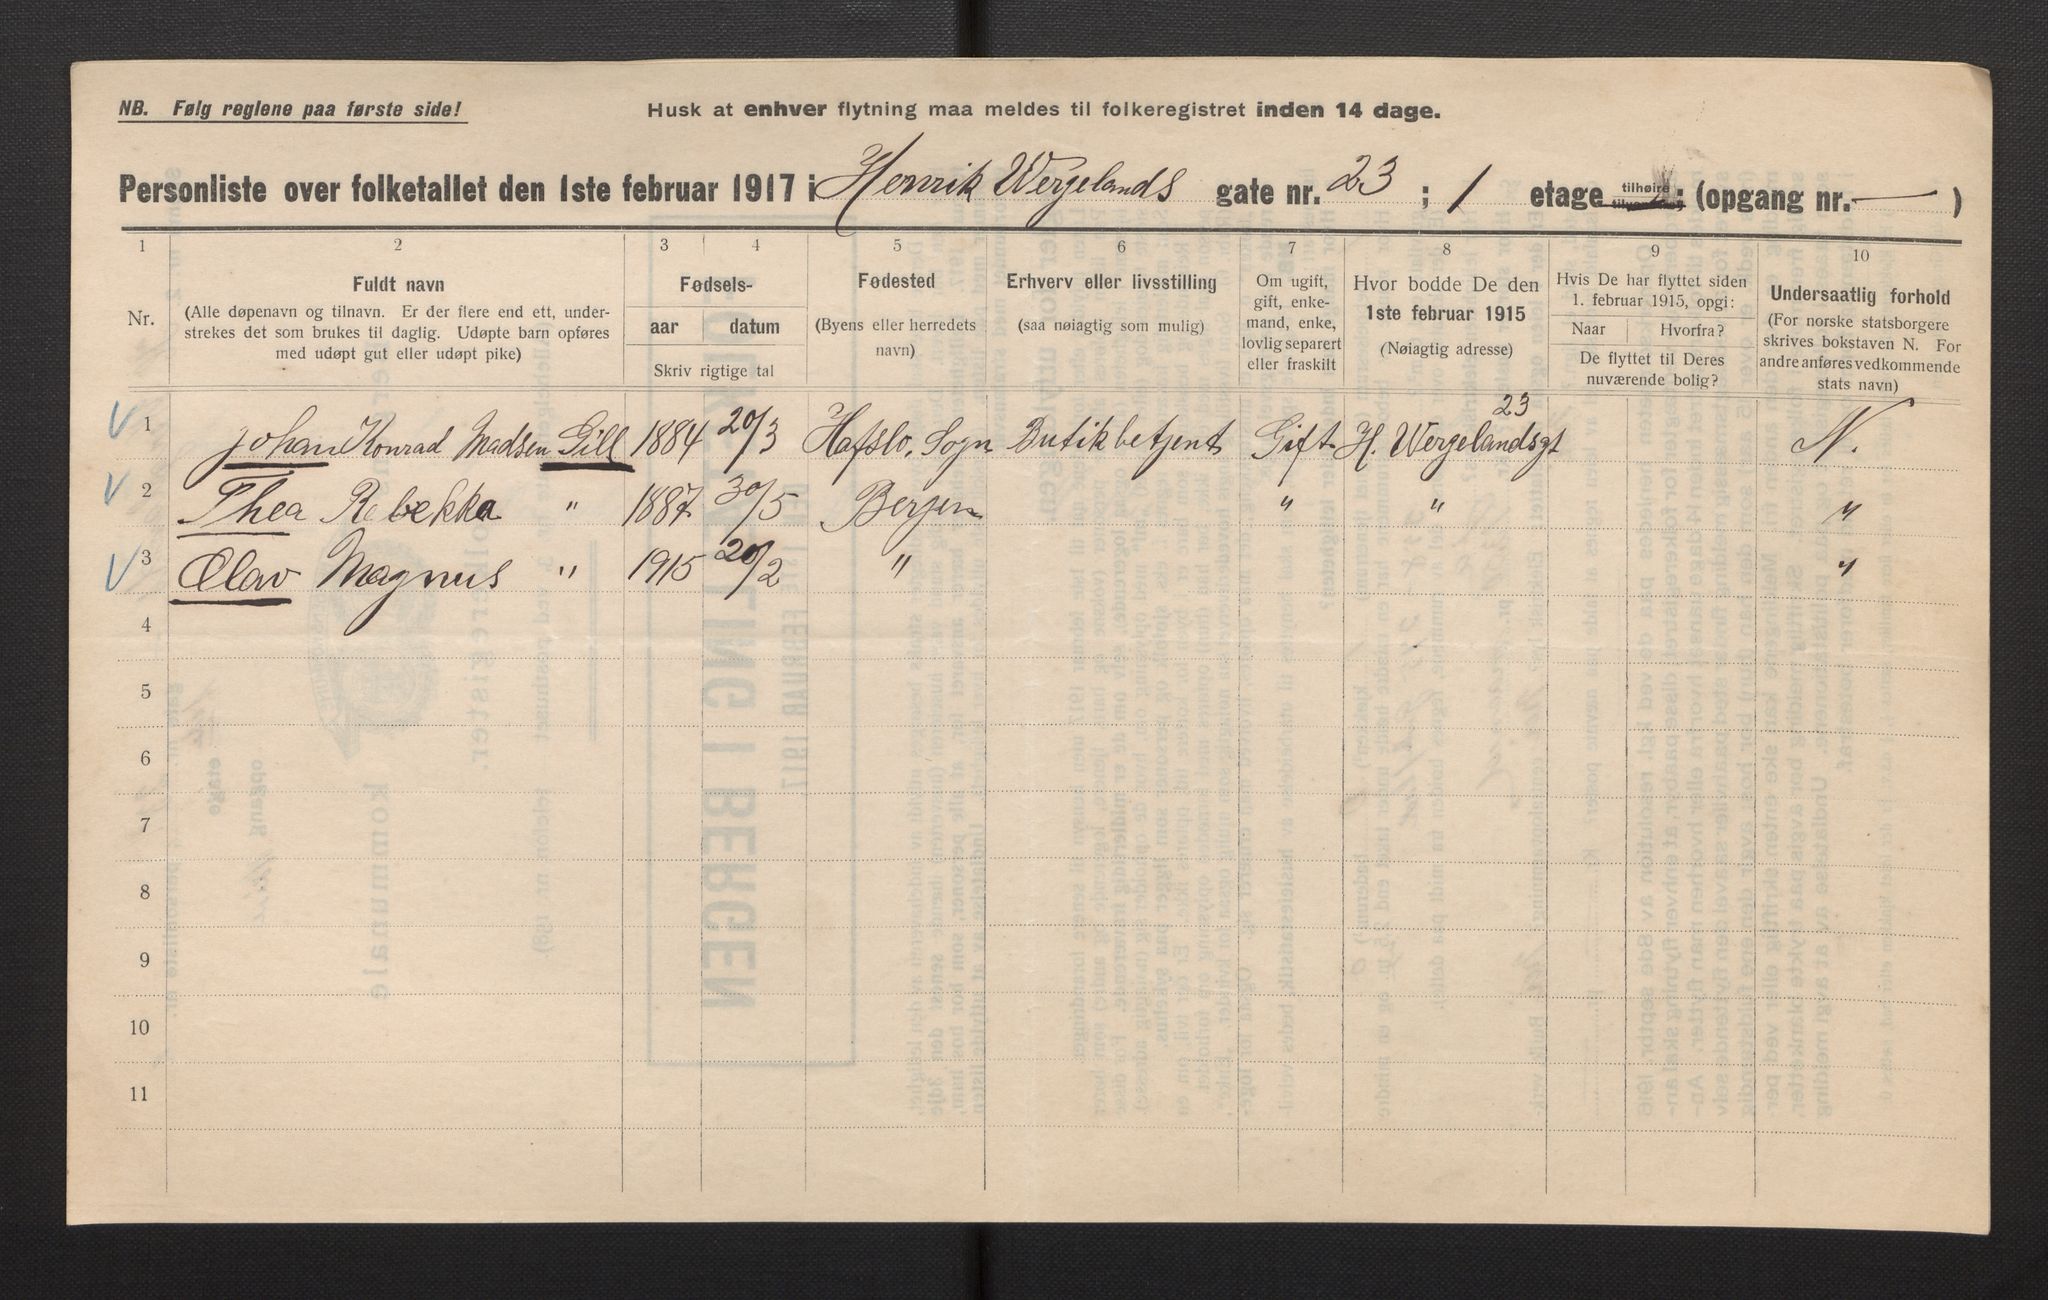 NB. Følg reglene paa første side!
Husk at enhver flytning maa meldes til folkeregistret inden 14 dage.
Personliste over folketallet den 1ste februar 1917 i Henrik Wergelands gate nr. 23 ; 1 etage tilhøire ; (opgang nr. — )
1 2 3 4 5 6 7 8 9 10
Nr.
Fuldt navn
(Alle døpenavn og tilnavn. Er der flere end ett, under-
strekes det som brukes til daglig. Udøpte barn opføres
med udøpt gut eller udøpt pike)
Fødsels-
aar datum
Skriv rigtige tal
Fødested
(Byens eller herredets
navn)
Erhverv eller livsstilling
(saa nøiagtig som mulig)
Om ugift,
gift, enke-
mand, enke,
lovlig separert
eller fraskilt
Hvor bodde De den
1ste februar 1915
(Nøiagtig adresse)
Hvis De har flyttet siden
1. februar 1915, opgi:
Naar Hvorfra?
De flyttet til Deres
nuværende bolig?
Undersaatlig forhold
(For norske statsborgere
skrives bokstaven N. For
andre anføres vedkommende
stats navn)
1 Johan Konrad Madsen Gill 1884 20/3 Hafslo, Sogn Butikbetjent Gift H. Wergelandsgt 23 N.
2 Thea Rebekka " 1887 30/5 Bergen " " "
3 Olav Magnus " 1915 20/2 " "
4
5
6
7
8
9
10
11